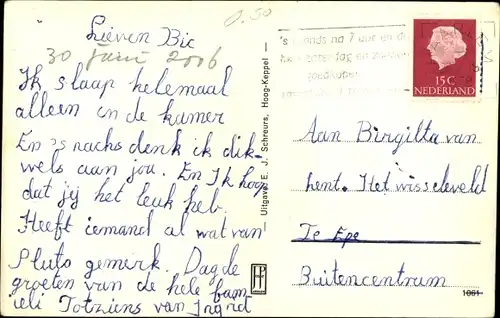 Lieven Bic
0.50
30 juni 2006
Ik slaap helemaal
alleen in de kamer
En 's nachs denk ik dik-
wels aan jou. En Ik hoop
dat jij het leuk heb
Heeft iemand al wat van
Pluto gemerk. Dag de
groeten van de hele fam
ieli Totziens van Ingrid
Uitgave E. J. Schreurs, Hoog-Keppel
's avonds na 7 uur en de
hele zaterdag en zondag
goedkoper
15C
NEDERLAND
Aan Birgitta van
hent. Het wisscleveld
Te Epe
Buitencentrum
1061